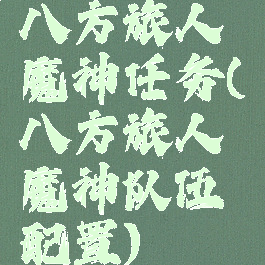 八方旅人
魔神任务(
八方旅人
魔神队伍
配置)